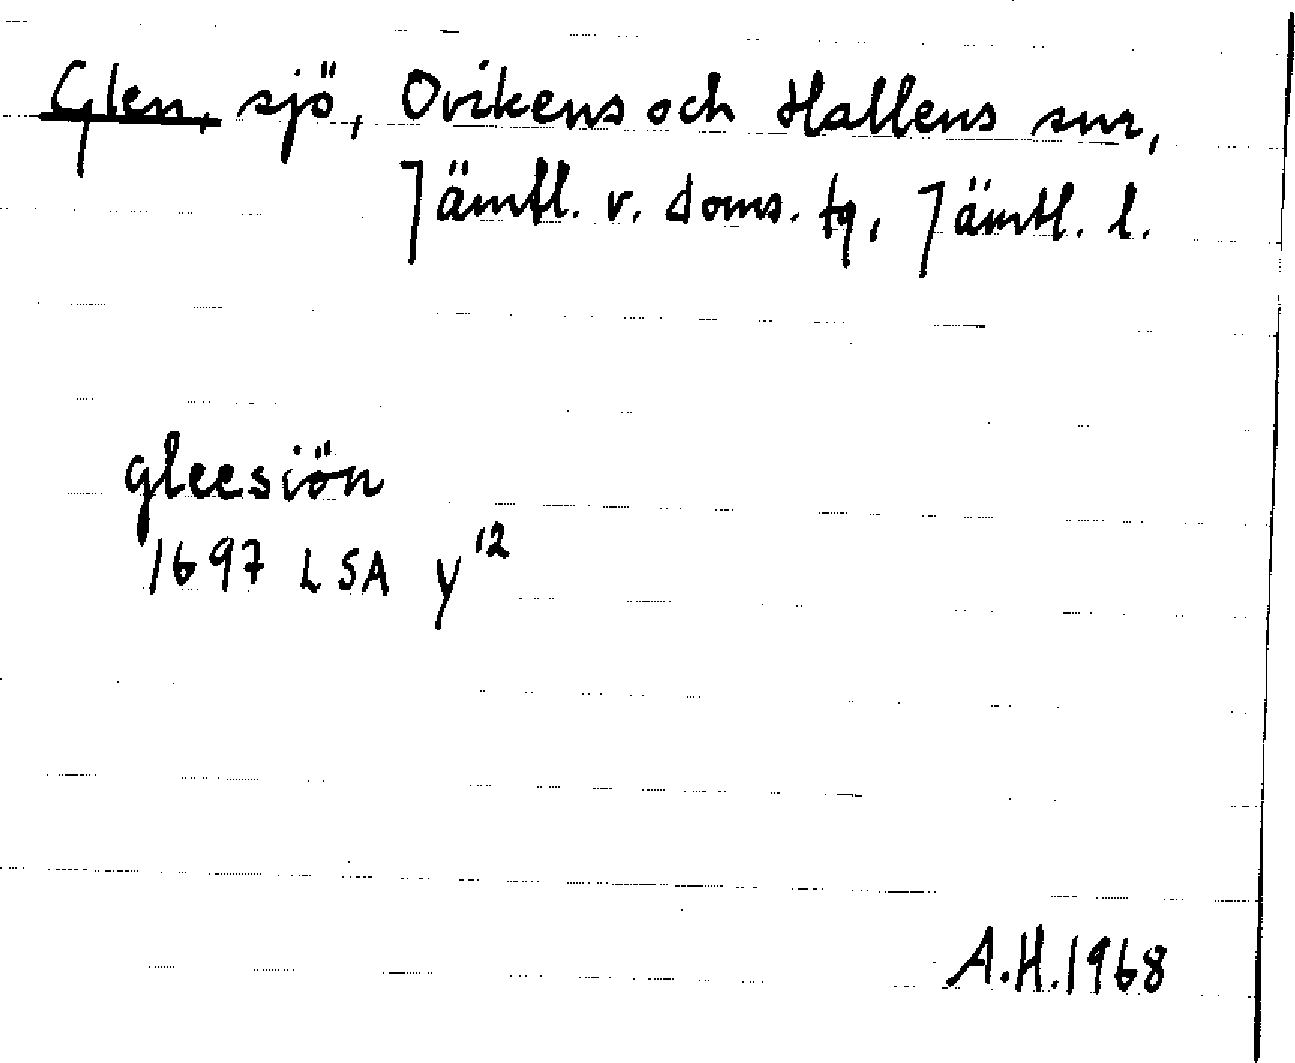 Glen, sjö, Ovikens och Hallens snr,
Jämtl. v. doms. tg, Jämtl. l.
gleesiön
1697 LSA y12
A.H.1968